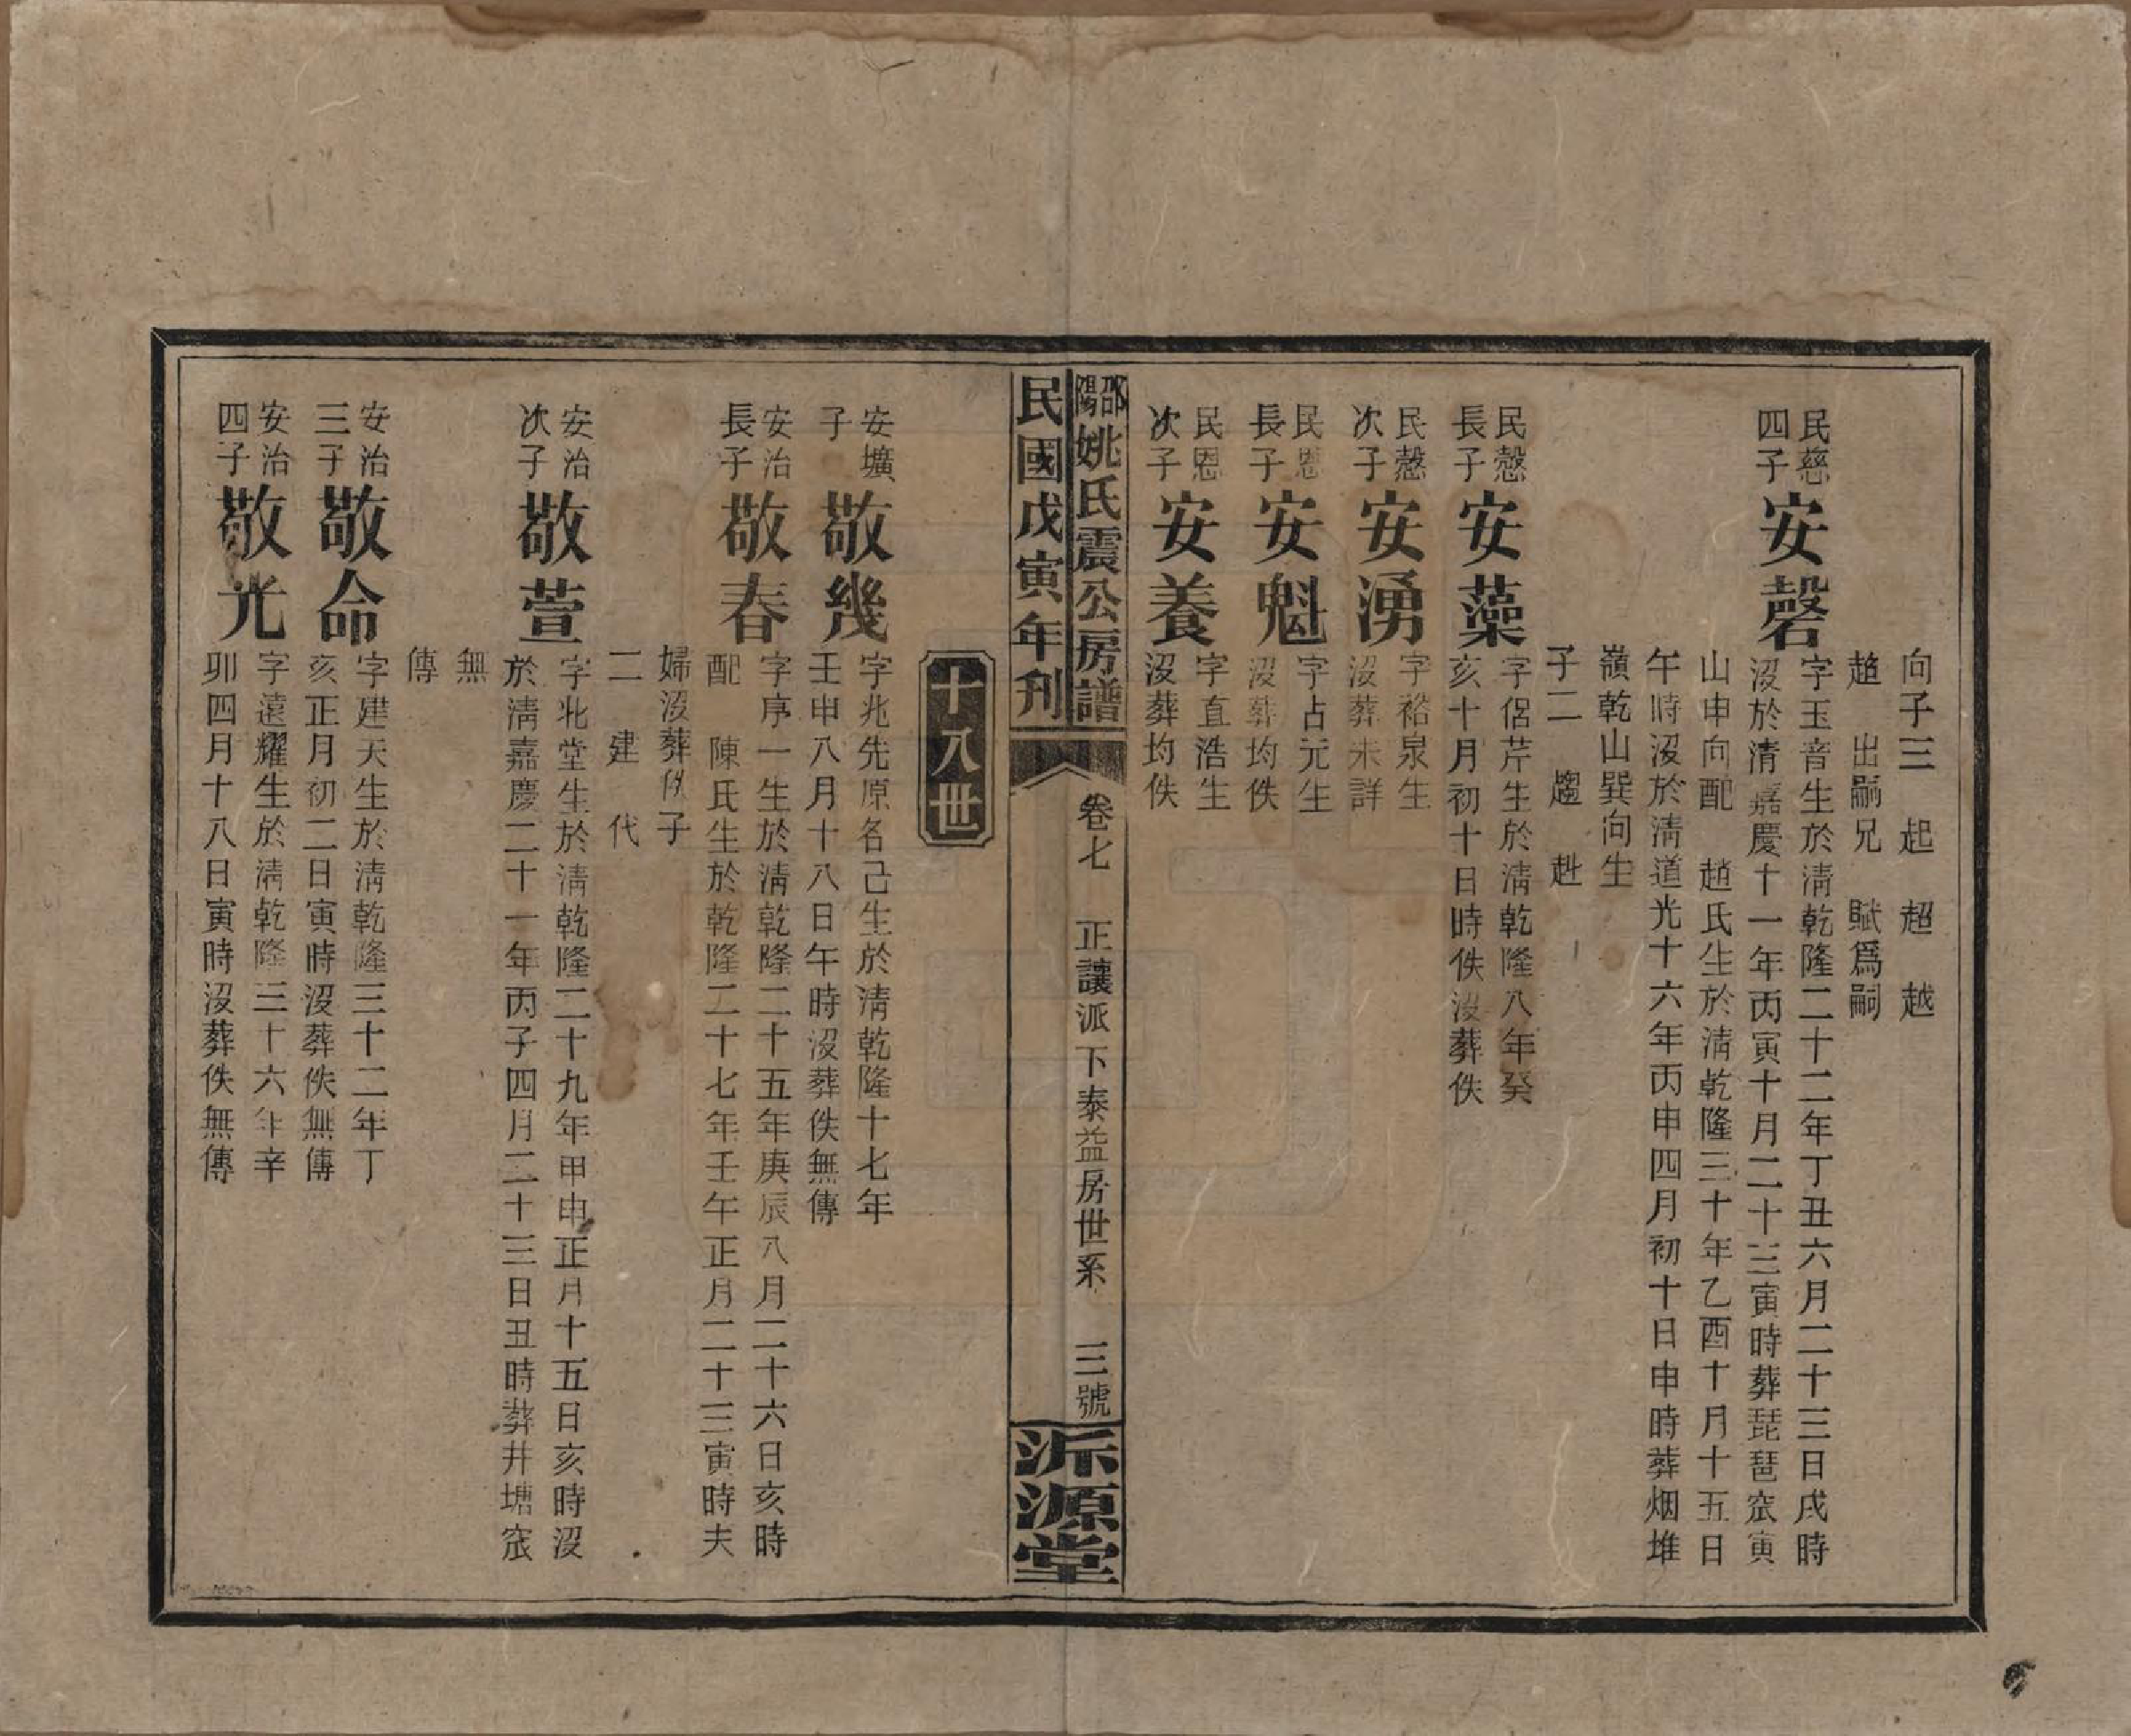 向子三 起 超 越
趙 出嗣兄 賦爲嗣
民慈
四子
安磬
字玉音生於清乾隆二十二年丁丑六月二十三日戌時
沒於清嘉慶十一年丙寅十月二十三寅時葬琵琶窊寅
山申向配 趙氏生於清乾隆三十年乙酉十月十五日
午時沒於清道光十六年丙申四月初十日申時葬烟堆
嶺乾山巽向生
子二 趨 赴
民慤
長子
安藻
字侶芹生於清乾隆八年癸
亥十月初十日時佚沒葬佚
民慤
次子
安湧
字裕泉生
沒葬未詳
民恩
長子
安魁
字占元生
沒葬均佚
民恩
次子
安養
字直浩生
沒葬均佚
邵陽姚氏震公房譜
民國戊寅年刊
卷七 正讓派下泰益房世系 三號
派源堂
十八世
安壙
子
敬幾
字兆先原名己生於清乾隆十七年
壬申八月十八日午時沒葬佚無傳
安治
長子
敬春
字序一生於清乾隆二十五年庚辰八月二十六日亥時
配 陳氏生於乾隆二十七年壬午正月二十三寅時夫
婦沒葬佚子
二 建 代
安治
次子
敬萱
字北堂生於清乾隆二十九年甲申正月十五日亥時沒
於清嘉慶二十一年丙子四月二十三日丑時葬井塘窊
無
傳
安治
三子
敬命
字建天生於清乾隆三十二年丁
亥正月初二日寅時沒葬佚無傳
安治
四子
敬光
字遠耀生於清乾隆三十六年辛
卯四月十八日寅時沒葬佚無傳